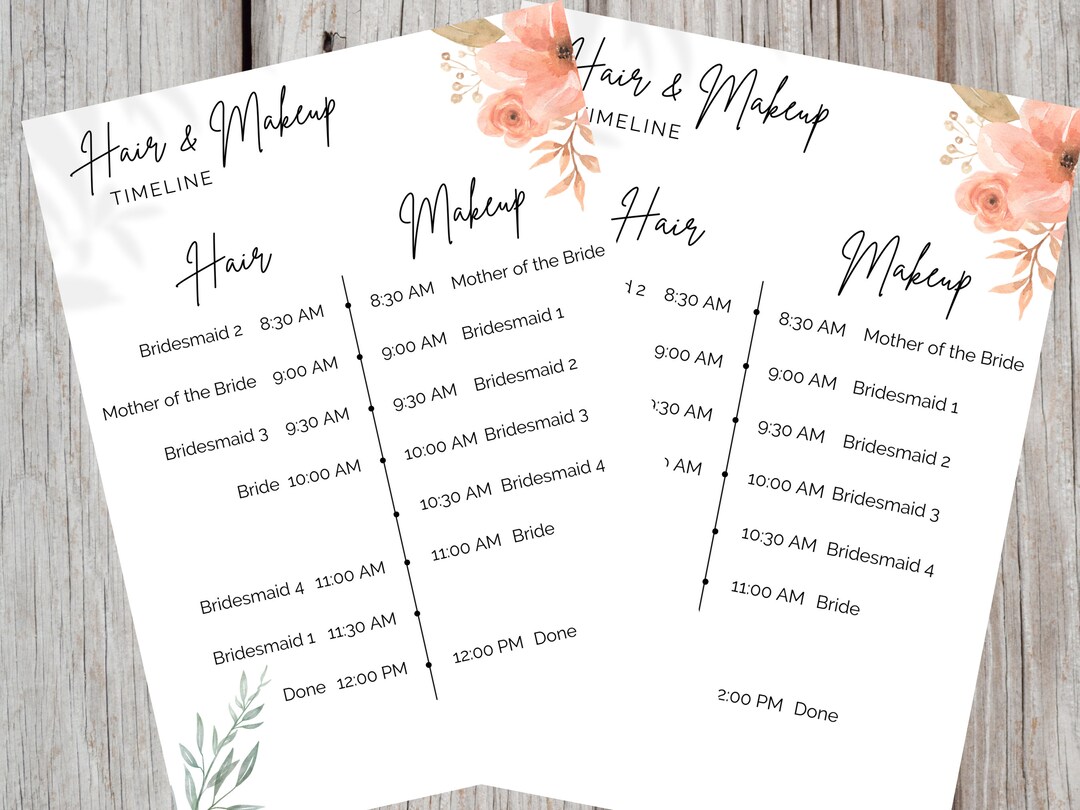 Hair & Makeup
TIMELINE
Hair
Makeup
Bridesmaid 2 8:30 AM
8:30 AM Mother of the Bride
Mother of the Bride 9:00 AM
9:00 AM Bridesmaid 1
Bridesmaid 3 9:30 AM
9:30 AM Bridesmaid 2
Bride 10:00 AM
10:00 AM Bridesmaid 3
10:30 AM Bridesmaid 4
Bridesmaid 4 11:00 AM
11:00 AM Bride
Bridesmaid 1 11:30 AM
Done 12:00 PM
12:00 PM Done
Hair & Makeup
TIMELINE
Hair
Makeup
2 8:30 AM
8:30 AM Mother of the Bride
9:00 AM
9:00 AM Bridesmaid 1
:30 AM
9:30 AM Bridesmaid 2
AM
10:00 AM Bridesmaid 3
10:30 AM Bridesmaid 4
11:00 AM Bride
2:00 PM Done